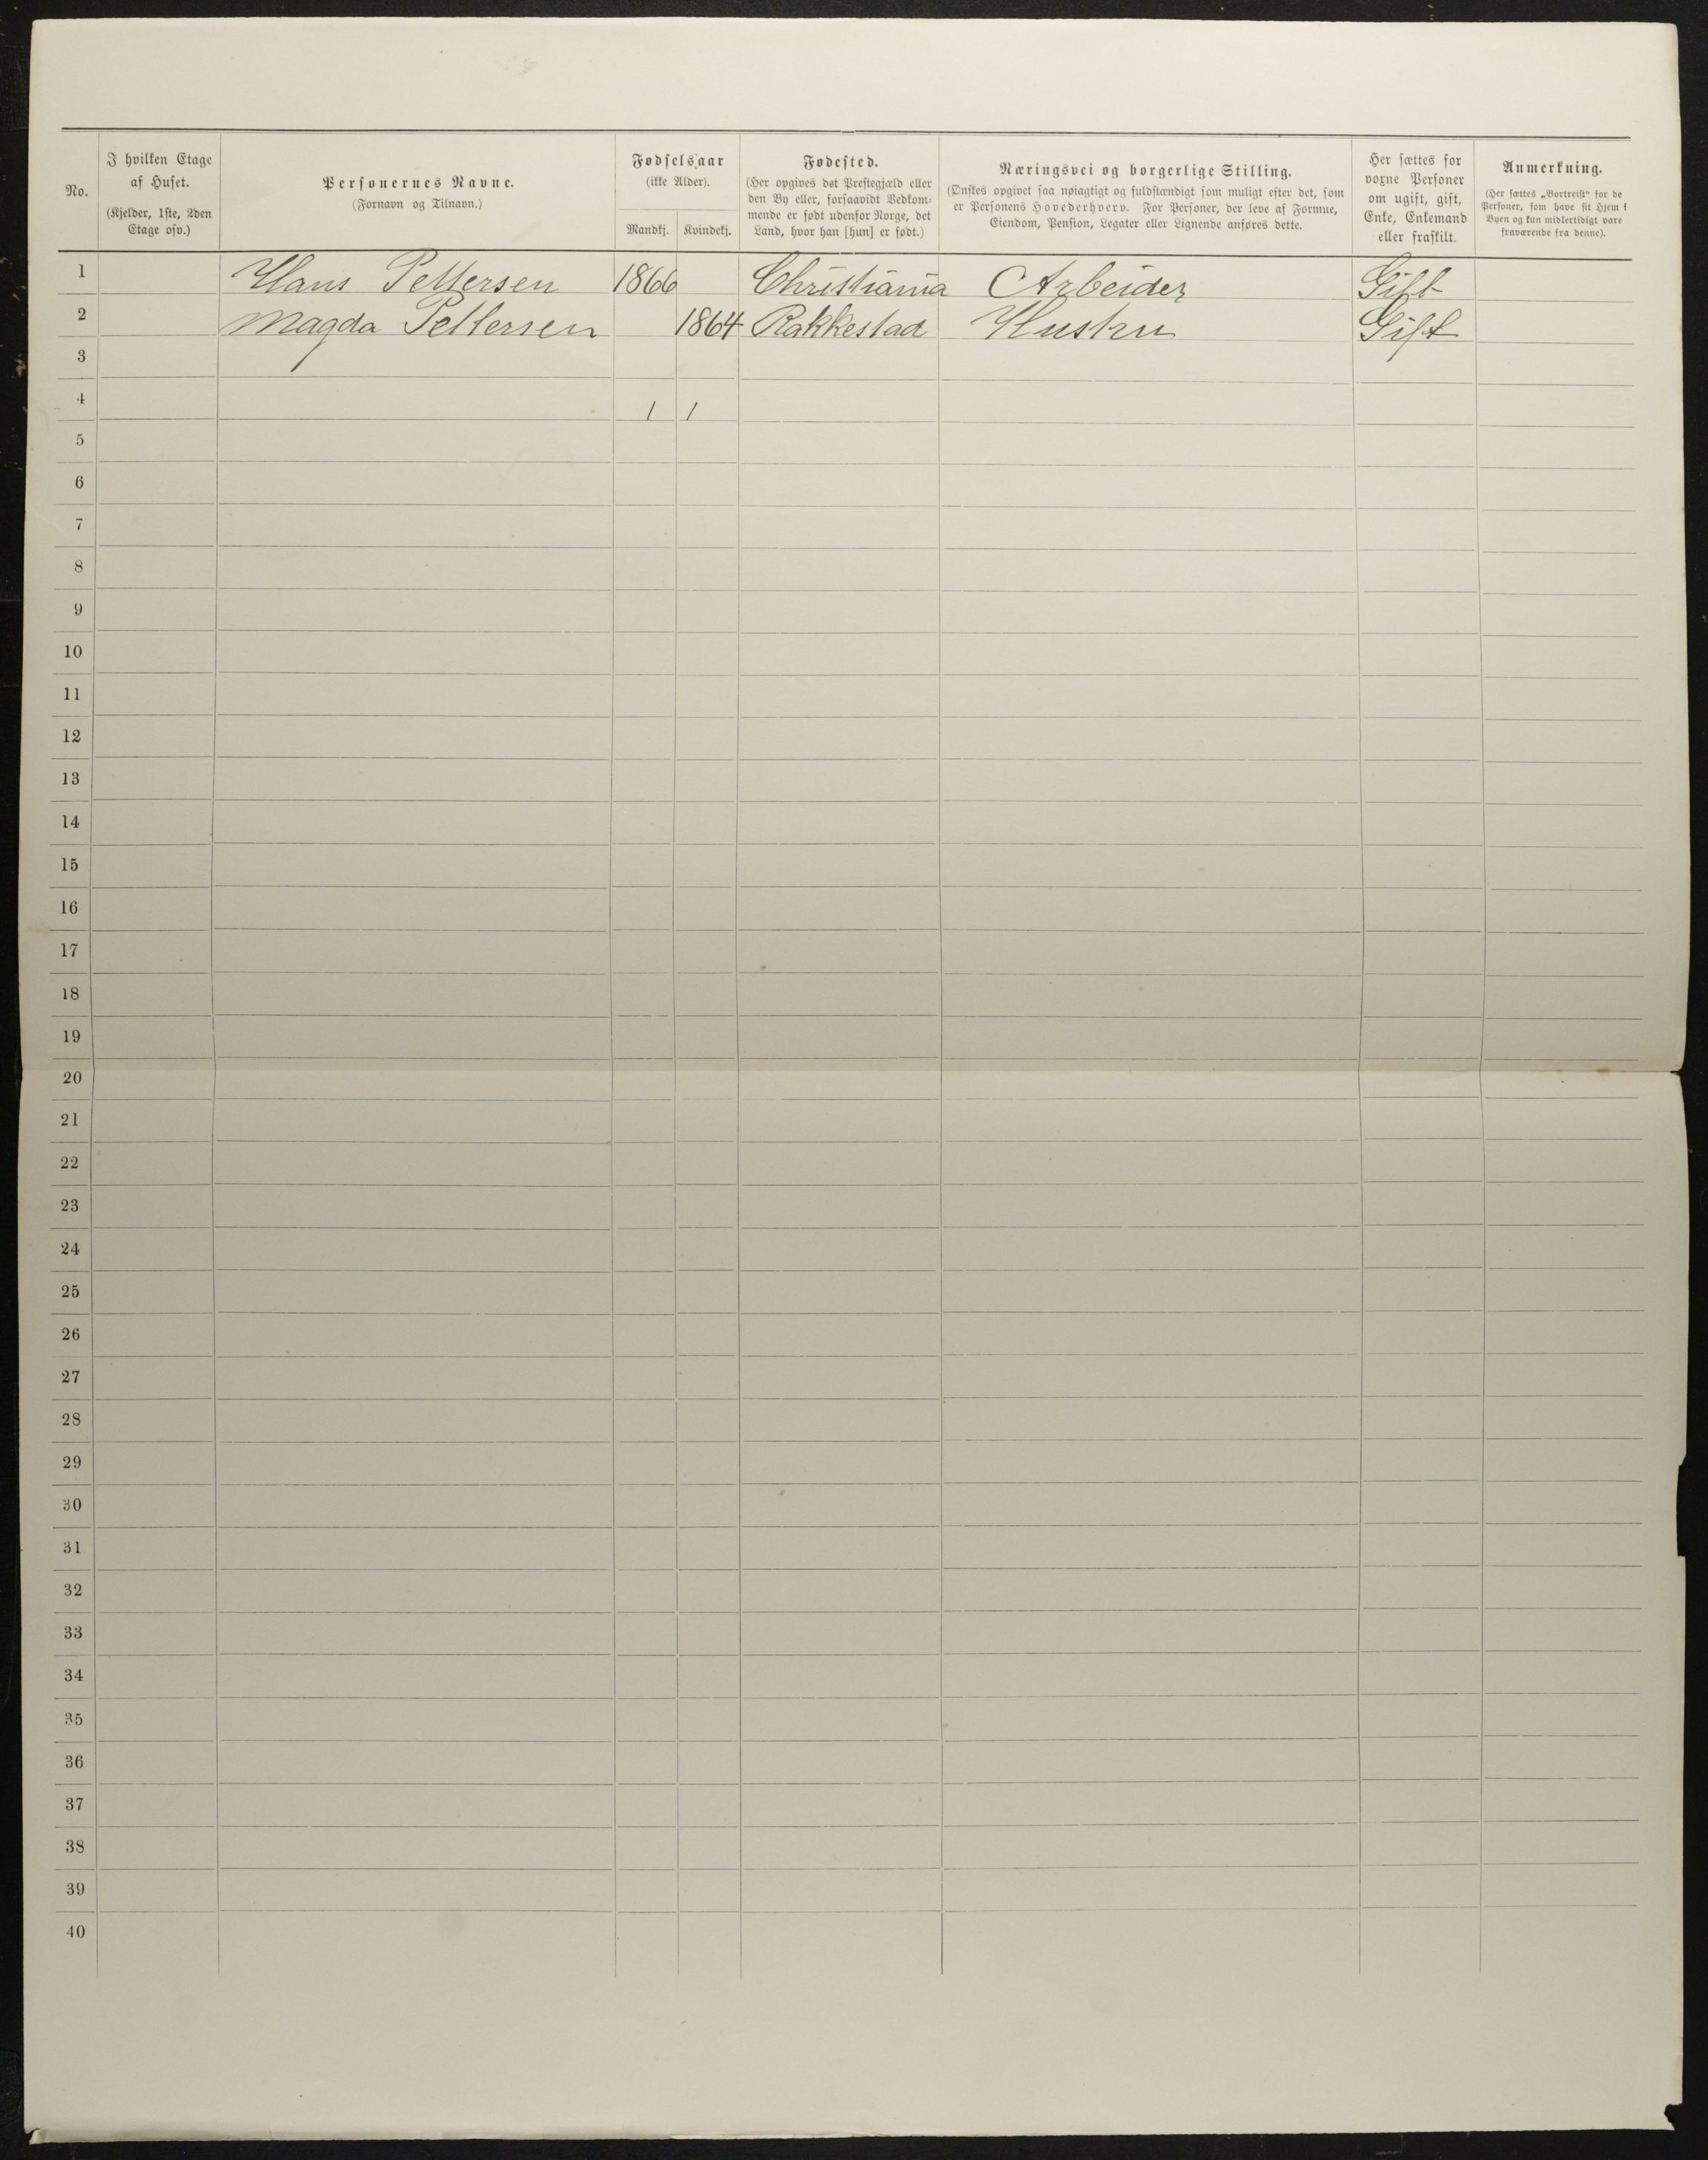 No.
I hvilken Etage
af Huset.
(Kjelder, 1ste, 2den
Etage osv.)
Personernes Navne.
(Fornavn og Tilnavn.)
Fødselsaar
(ikke Alder).
Mandkj. Kvindekj.
Fødested.
(Her opgives det Prestegjæld eller
den By eller, forsaavidt Vedkom-
mende er født udenfor Norge, det
Land, hvor han [hun] er født.)
Næringsvei og borgerlige Stilling.
(Ønskes opgivet saa nøiagtigt og fuldstændigt som muligt efter det, som
er Personens Hovederhverv. For Personer, der leve af Formue,
Eiendom, Pension, Legater eller Lignende anføres dette.
Her sættes for
voxne Personer
om ugift, gift,
Enke, Enkemand
eller fraskilt.
Anmerkning.
(Her sættes „Bortreist“ for de
Personer, som have sit Hjem i
Byen og kun midlertidigt vare
fraværende fra denne).
1 Hans Pettersen 1866 Christiania Arbeider Gift
2 Magda Pettersen 1864 Rakkestad Hustru Gift
3
4 1 1
5
6
7
8
9
10
11
12
13
14
15
16
17
18
19
20
21
22
23
24
25
26
27
28
29
30
31
32
33
34
35
36
37
38
39
40